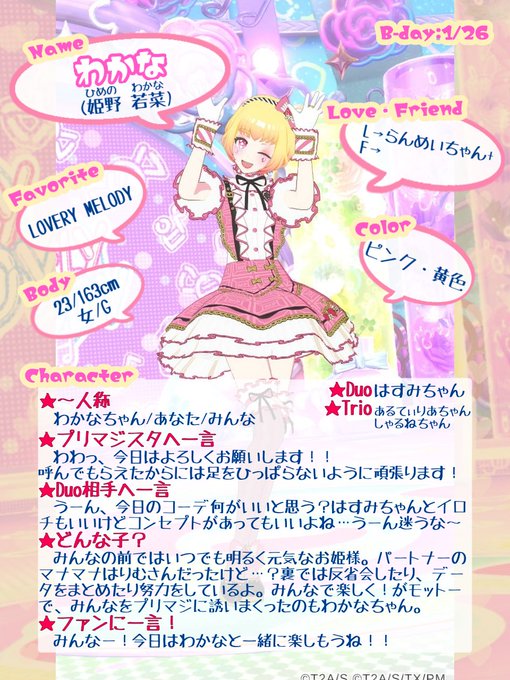 Name
B-day;1/26
わかな
ひめの わかな
(姫野 若菜)
Love・Friend
L→らんめいちゃん†
F→
Favorite
LOVERY MELODY
Color
ピンク・黄色
Body
23/163cm
女/G
Character
★Duoはすみちゃん
★Trioあるてぃりあちゃん
しゃるねちゃん
★〜人称
わかなちゃん/あなた/みんな
★プリマジスタへ一言
わわっ、今日はよろしくお願いします！！
呼んでもらえたからには足をひっぱらないように頑張ります！
★Duo相手へ一言
うーん、今日のコーデ何がいいと思う？はすみちゃんとイロ
チもいいけどコンセプトがあってもいいよね…うーん迷うな〜
★どんな子？
みんなの前ではいつでも明るく元気なお姫様。パートナーの
マナマナはりむさんだったけど…？裏では反省会したり、デー
タをまとめたり努力をしているよ。みんなで楽しく！がモットー
で、みんなをプリマジに誘いまくったのもわかなちゃん。
★ファンに一言！
みんなー！今日はわかなと一緒に楽しもうね！！
©T2A/S ©T2A/S/TX/PM